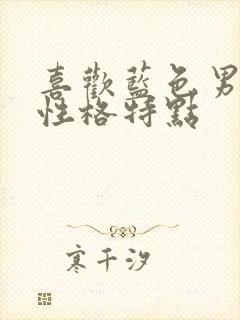 喜歡藍色男
性格特點
寒千汐